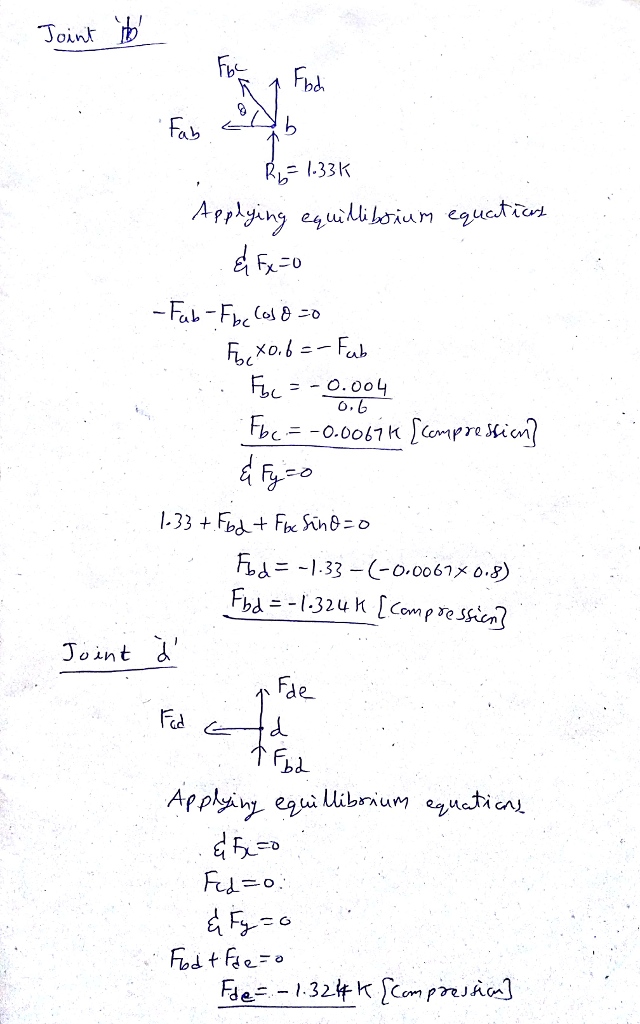 Joint 'b'
Fbc
Fbd
θ
Fab
b
Rb = 1.33K
Applying equillibrium equations
Σ Fx=0
-Fab - Fbc Cos θ =0
Fbc x0.6 = - Fab
Fbc = - 0.004
0.6
Fbc = -0.0067K [Compression]
Σ Fy=0
1.33 + Fbd + Fbc Sinθ=0
Fbd = -1.33 - (-0.0067 x 0.8)
Fbd = -1.324K [Compression]
Joint 'd'
Fde
Fcd
d
Fbd
Applying equillibrium equations
Σ Fx=0
Fcd=0
Σ Fy=0
Fbd + Fde=0
Fde= -1.324K [Compression]